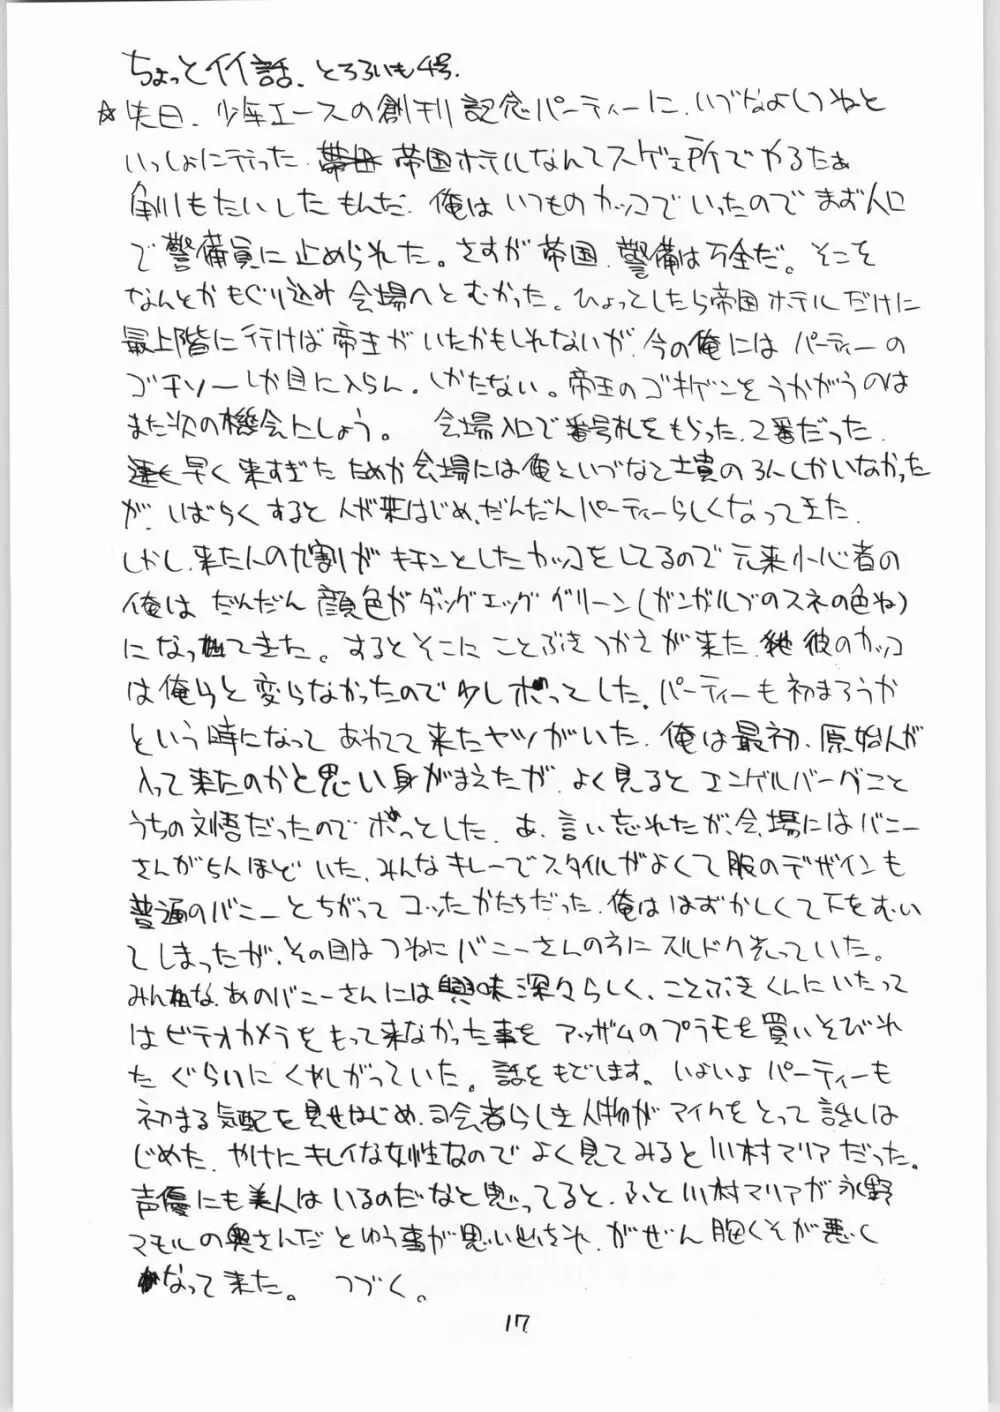 ちょっとイイ話、とろろいも4号.
☆先日、少年エースの創刊記念パーティーに、いづなよしつねと
いっしょに行った 帝国ホテルなんてスゲェ所でやるたぁ
角川もたいしたもんだ. 俺はいつものカッコでいったのでまず入口
で警備員に止められた。さすが帝国、警備は万全だ。そこを
なんとかもぐり込み会場へとむかった。ひょっとしたら帝国ホテルだけに
最上階に行けば帝王がいたかもしれないが、今の俺にはパーティーの
ゴチソーしか目に入らん、しかたない。帝王のゴキゲンをうかがうのは
また次の機会にしよう。 会場入口で番号札をもらった、2番だった.
早く来すぎたためか会場には俺といづなと士貴の3人しかいなかった
が、しばらくすると人が来はじめ、だんだんパーティーらしくなってきた.
しかし、来た人の九割がキチンとしたカッコをしてるので元来小心者の
俺はだんだん顔色がダックエッググリーン(ガンガルブのスネの色ね)
になってきた。するとそこにことぶきつかさが来た、彼のカッコ
は俺らと変らなかったので少しホッてした。パーティーも初まろうか
という時になってあわてて来たヤツがいた、俺は最初、原始人が
入って来たのかと思い身がまえたが、よく見るとエンゲルバーグこと
うちの刘悟だったのでホッとした. あ、言い忘れたが、会場にはバニー
さんが5人ほどいた、みんなキレーでスタイルがよくて服のデザインも
普通のバニーとちがってコッたかたちだった、俺ははずかしくて下をむい
てしまったが、その目はつねにバニーさんの方にスルドク光っていた。
みんな、あのバニーさんには興味深々らしく、ことぶきくんにいたって
はビデオカメラをもって来なかった事をアッザムのプラモを買いそびれ
たぐらいにくやしがっていた。話をもどします。いよいよパーティーも
初まる気配を見せはじめ、司会者らしき人物がマイクをとって話しは
じめた、やけにキレイな女性なのでよく見てみると川村マリアだった。
声優にも美人はいるのだなと思ってると、ふと川村マリアが永野
マモルの奥さんだとゆう事が思い出され、がぜん胸くそが悪く
なって来た。 つづく。
17